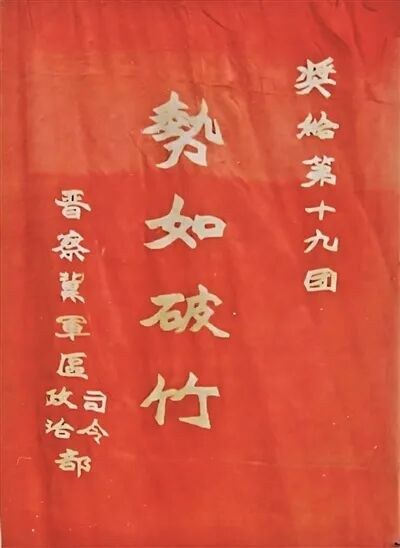 奖给第十九团
勢如破竹
晋察冀軍區
司令
政治部